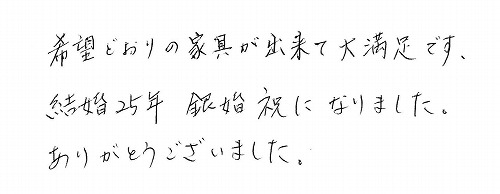 希望どおりの家具が出来て大満足です、
結婚25年 銀婚祝になりました。
ありがとうございました。